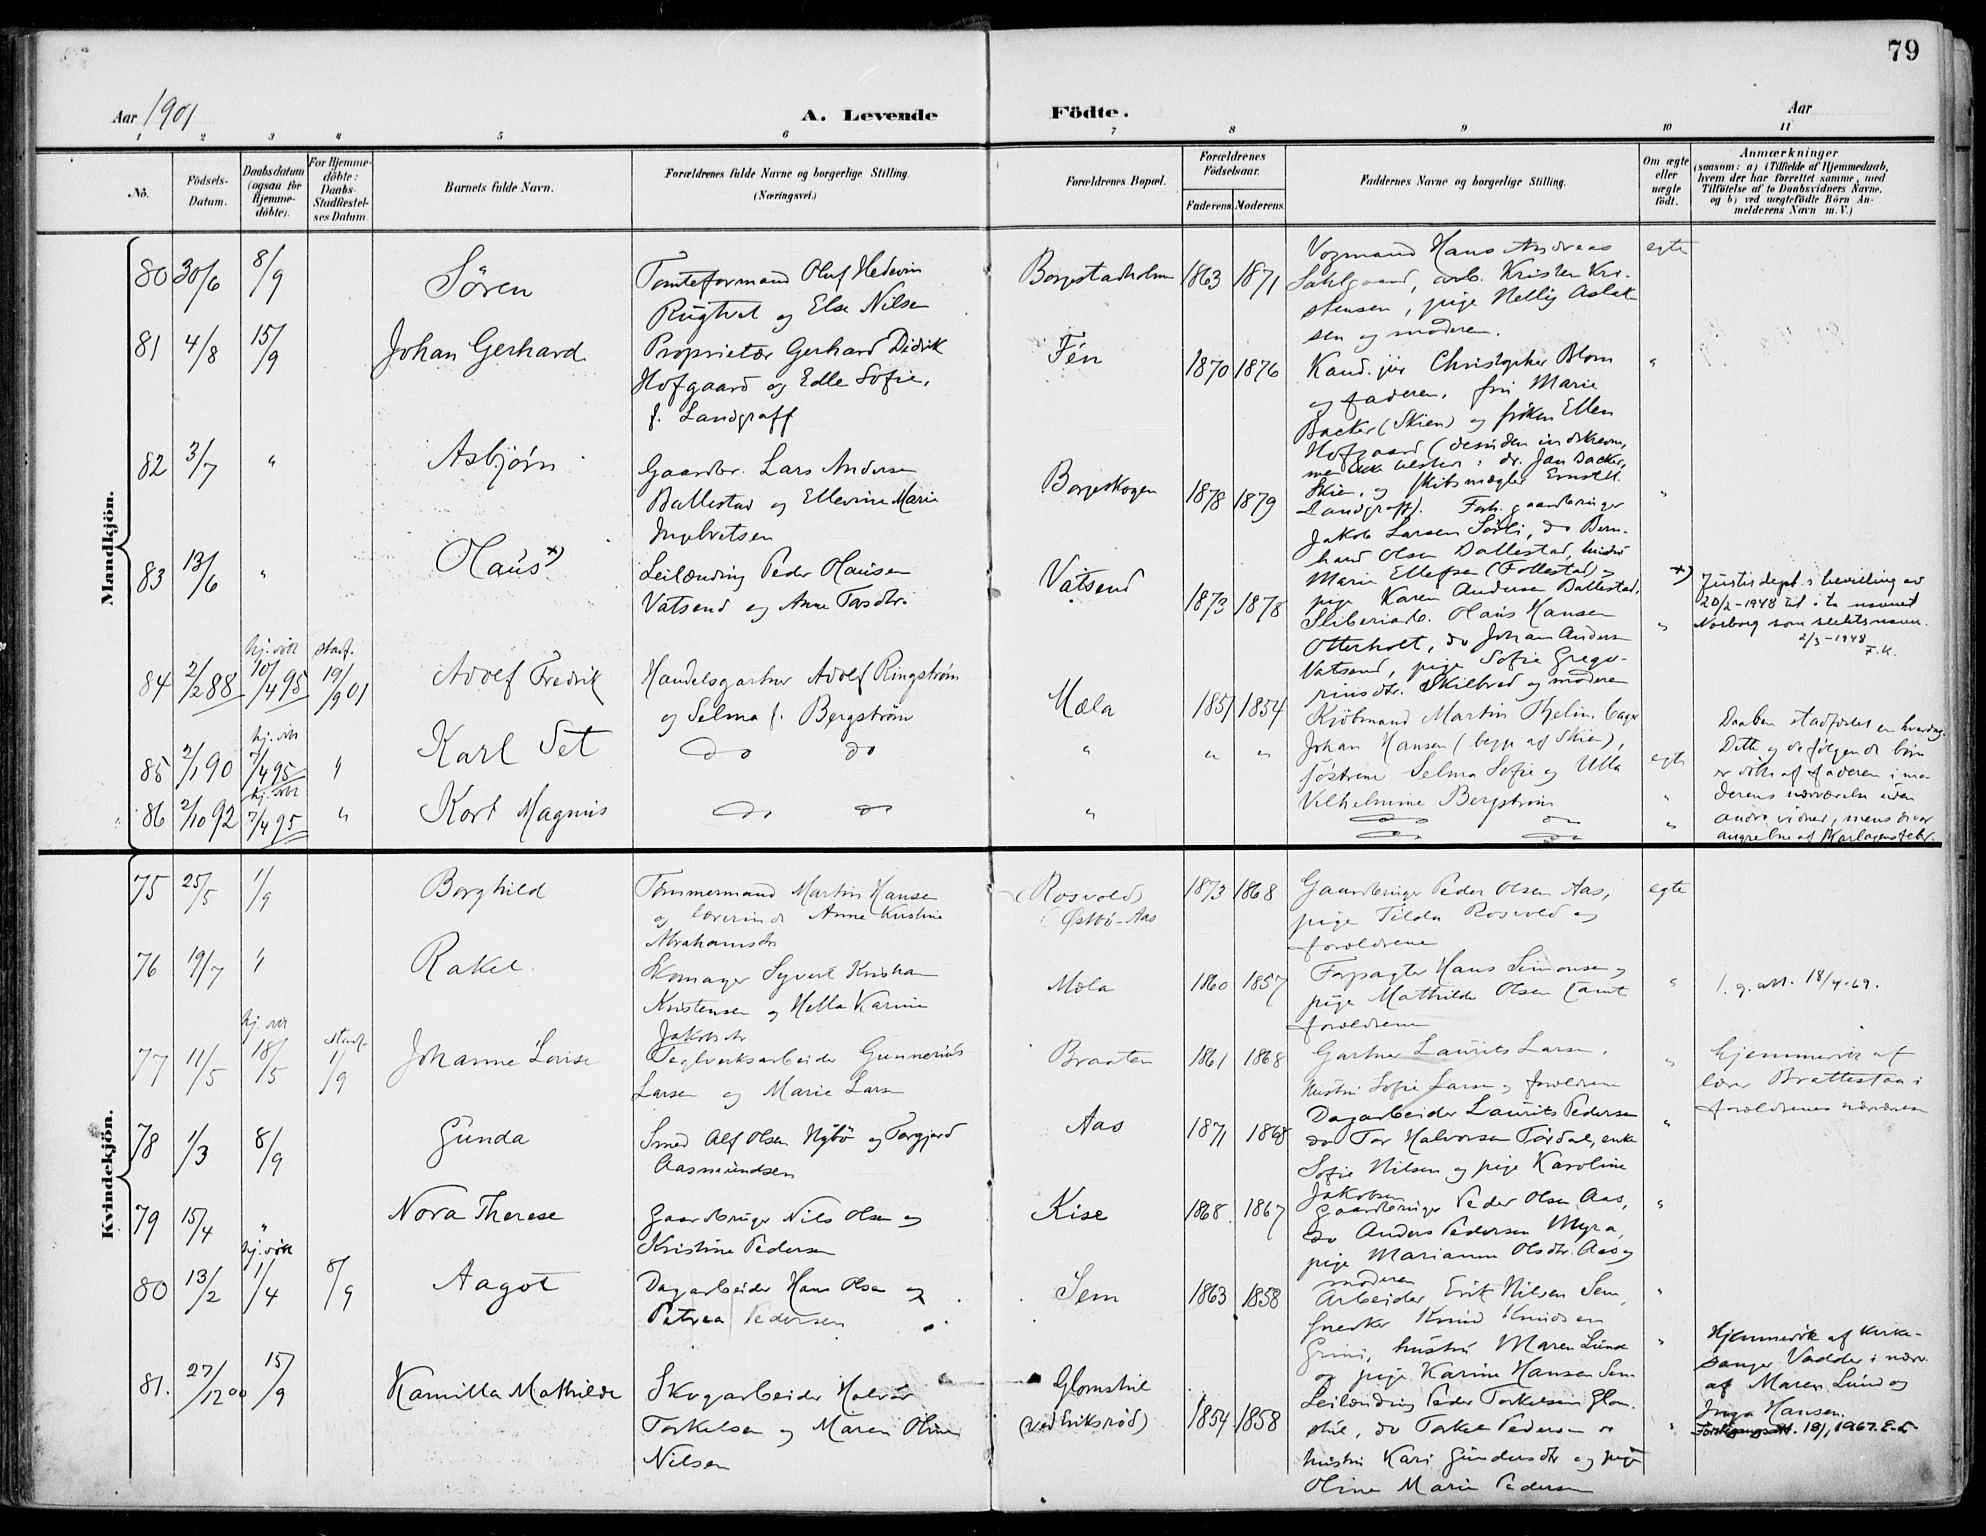 79
Aar 1901 A. Levende Födte. Aar
1 2 3 4 5 6 7 8 9 10 11
No.
Födsels-Datum.
Daabsdatum (ogsaa for Hjemme-döbte).
For Hjemme-döbte: Daabs-Stadfæstel-ses Datum.
Barnets fulde Navn.
Forældrenes fulde Navne og borgerlige Stilling.
(Næringsvei.)
Forældrenes Bopæl.
Forældrenes Födselsaar.
Faderens. Moderens.
Faddernes Navne og borgerlige Stilling.
Om ægte eller uægte födt.
Anmærkninger
(saasom: a) i Tilfælde af Hjemmedaab,
hvem der har forrettet samme, med
Tilföielse af to Daabsvidners Navne,
og b) ved uægtefödte Börn An-
melderens Navn m. V.)
Mandkjön.
80 30/6 8/9 Sören
Tomteformand Oluf Hedevin
Rugtvet og Else Nilsen
Borgestadholm 1863 1871
Vognmand Hans Andreas
Sahlgaard, arb. Kristen Kri-
stensen, pige Nelly Aslak-
sen og moderen.
egte
81 4/8 15/9 Johan Gerhard
Proprietær Gerhard Didrik
Hofgaard og Edle Sofie,
f. Landgraff
Fén 1870 1876
Kand. jur Christopher Blom
og faderen, fru Marie
Backer (Skien) og frøken Ellen
Hofgaard (desuden indskrevne,
men ikke tilsted: dr. Jan Backer,
Skien, og skibsmægler Ernst
Landgraff).
"
82 3/7 " Asbjørn
Gaardbr. Lars Andersen
Ballestad og Ellevine Marie
Ingebretsen
Borgeskogen 1878 1879
Forh. gaardbruger
Jakob Larsen Sörli, do Bern-
hard Olsen Ballestad, hustru
Marie Ellefsen (Follestad) og
pige Karen Andersen Ballestad.
"
83 13/6 " Olaus x)
Leilænding Peder Hansen
Vatsend og Anne Torsdtr.
Vatsend 1873 1878
Sliberiarb. Olaus Hansen
Otterholt, do Johan Andersen
Vatsend, pige Sofie Grego-
riusdtr. Skilbred og moderen
"
x) Justisdept.s bevilling av
20/2-1948 til å ta navnet
Norborg som slektsnavn.
2/3-1948
F.K.
84 2/2 88 hj. döbt 10/4 95 stadf. 19/9 01 Adolf Fredrik
Handelsgartner Adolf Ringström
og Selma f. Bergström
Mæla 1851 1854
Kjöbmand Martin Hjelm, bager
Johan Hansen (begge af Skien),
söstrene Selma Sofie og Ulla
Vilhelmine Bergström
egte
85 2/1 90 hj. döbt 7/4 95 " Karl Set
do do
" " "
do do
"
86 2/10 92 hj. döbt 7/4 95 " Kort Magnus
do do
"
do do
"
Daaben stadfæstet en hverdag.
Dette og de følgende börn
er döbt af faderen i mo-
derens nærværelse uden
andre vidner,
Kvindekjön.
75 25/5 1/9 Borghild
Tömmermand Martin Hansen
og lærerinde Anne Kristine
Abrahamsdtr.
(Rosvold)
i Østbö-Aas
1873 1868
Gaardbruger Peder Olsen Aas,
pige Tilda Rosvold og
forældrene
egte
76 19/7 " Rakel.
Skomager Syvert Kristian
Kristensen og Hella Karine
Jakobsdtr
Mæla 1860 1857
Forpagter Hans Simonsen og
pige Mathilde Olsen samt
forældrene
"
1. g. att. 18/4-69.
77 11/5 hj. döbt 18/5 stadf. 1/9 Johanne Lovise
Teglverksarbeider Gunnerius
Larsen og Marie Larsen
Braaten 1861 1868
Gartner Laurits Larsen,
hustru Sofie Larsen og forældrene
"
hjemmedöbt af
lærer Brattestaa i
forældrenes nærværelse
78 1/3 8/9 Gunda
Smed Alf Olsen Nybö og Torgjerd
Aasmundsen
Aas 1871 1868
Dagarbeider Laurits Pedersen
do Tor Halvorsen Tördal, enke
Sofie Nilsen og pige Karoline
Jakobsen
"
79 15/4 " Nora Therese
Gaardbruger Nils Olsen og
Kristine Pedersen
Kise 1868 1867
Gaardbruger Peder Olsen Aas,
do Anders Pedersen Myra,
pige Marianne Olsdtr. Aas og
moderen
"
80 13/2 hj. döbt 1/4 8/9 Aagot
Dagarbeider Hans Olsen og
Petrea Pedersen
Sem 1863 1858
Arbeider Erik Nilsen Sem,
Snedker Knud Knudsen
Grini, hustru Maren Lund
og pige Karine Hansen Sem
"
Hjemmedöbt af kirke-
sanger Vadder i nærv.
af Maren Lund og
Inga Hansen.
81. 27/12 00 15/9 Kamilla Mathilde
Skogarbeider Halvor
Torkelsen og Maren Oline
Nilsen
Glomstul
(ved Eriksrød)
1854 1858
Leilænding Peder Torkelsen Glom-
stul, do Torkel Pedersen
hustru Kari Gundersdtr og pige
Oline Marie Pedersen
"
18/1 1967. E.L